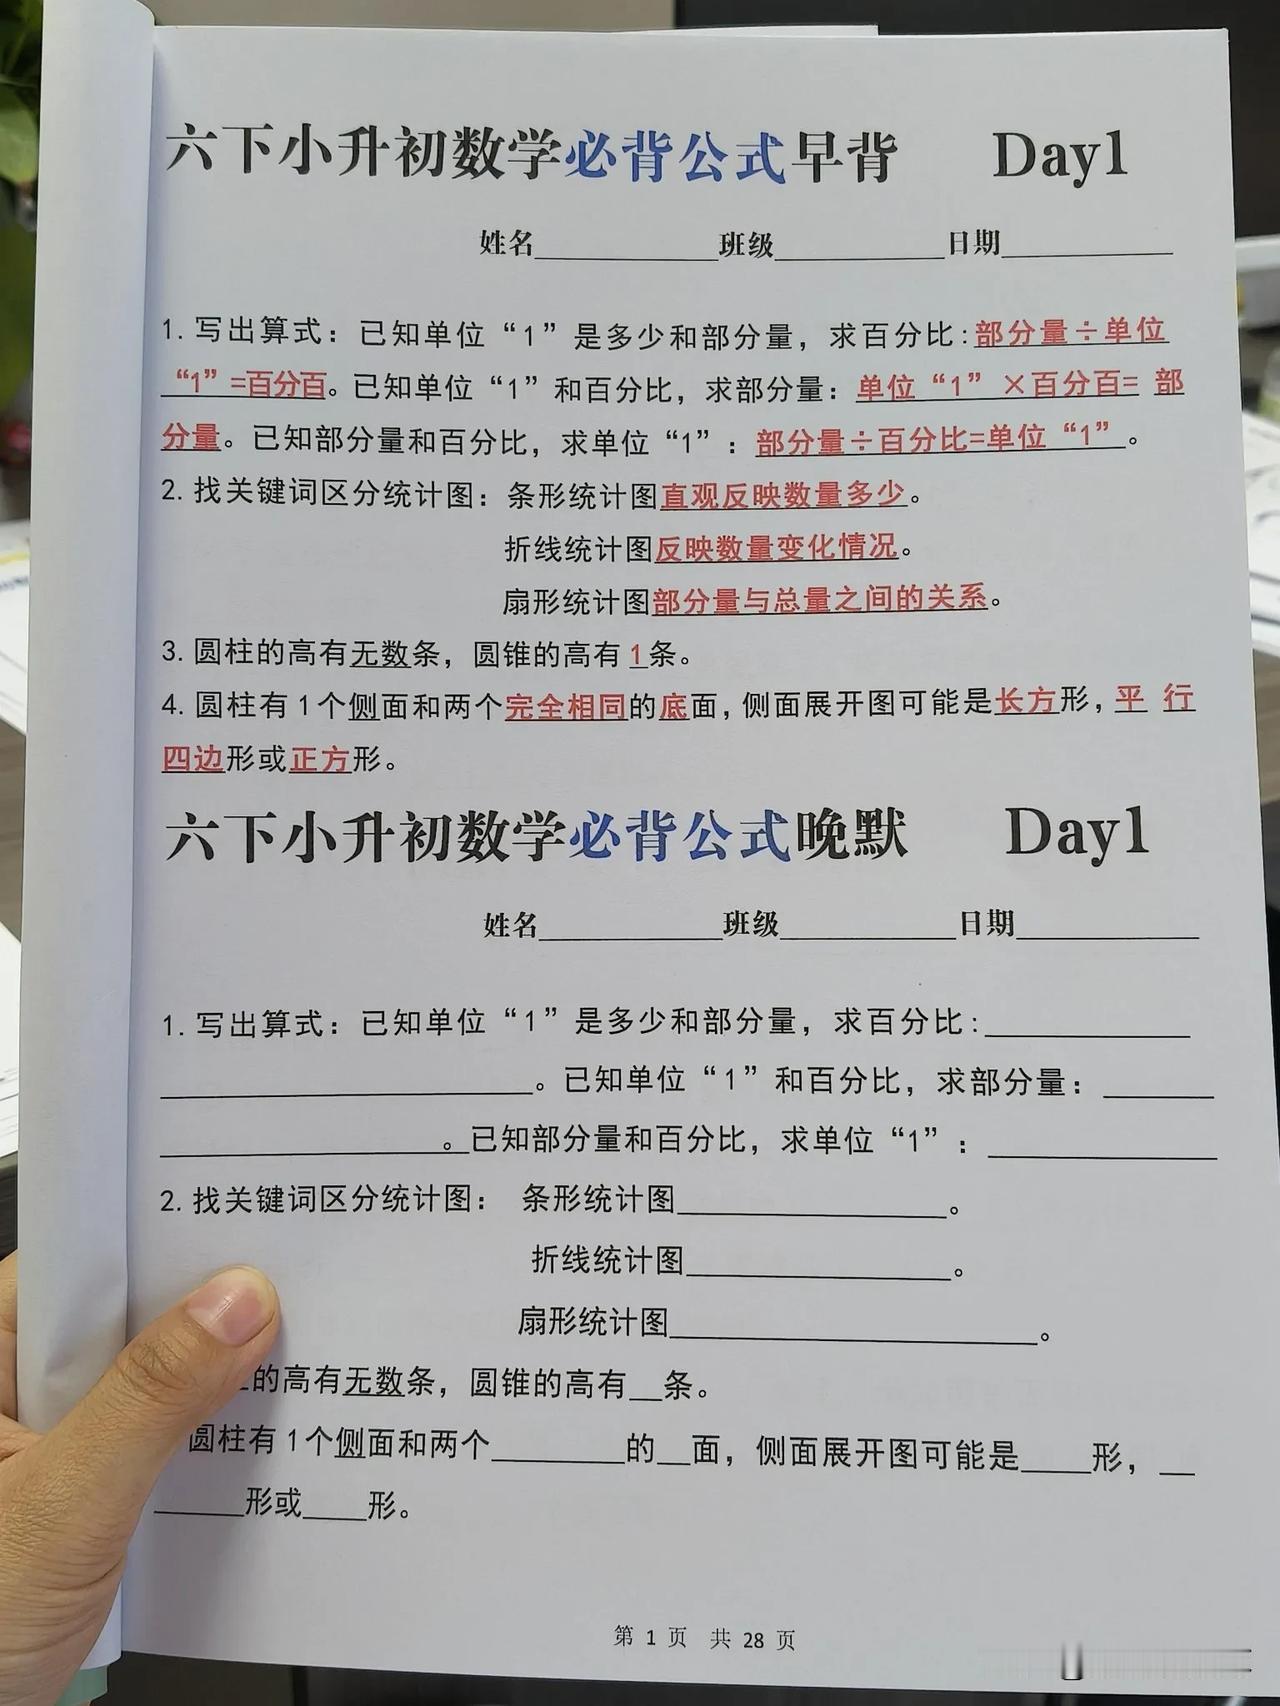 六下小升初数学必背公式早背 Day1
姓名____________班级____________日期____________
1.写出算式：已知单位“1”是多少和部分量，求百分比：部分量÷单位
“1”=百分百。已知单位“1”和百分比，求部分量：单位“1”×百分百= 部
分量。已知部分量和百分比，求单位“1”：部分量÷百分比=单位“1”。
2.找关键词区分统计图：条形统计图直观反映数量多少。
折线统计图反映数量变化情况。
扇形统计图部分量与总量之间的关系。
3.圆柱的高有无数条，圆锥的高有1条。
4.圆柱有1个侧面和两个完全相同的底面，侧面展开图可能是长方形，平 行
四边形或正方形。
六下小升初数学必背公式晚默 Day1
姓名____________班级____________日期____________
1.写出算式：已知单位“1”是多少和部分量，求百分比：____________
____________。已知单位“1”和百分比，求部分量：______
____________。已知部分量和百分比，求单位“1”：____________
2.找关键词区分统计图： 条形统计图____________。
折线统计图____________。
扇形统计图____________。
的高有无数条，圆锥的高有__条。
圆柱有1个侧面和两个________的__面，侧面展开图可能是____形，__
______形或____形。
第 1 页 共 28 页